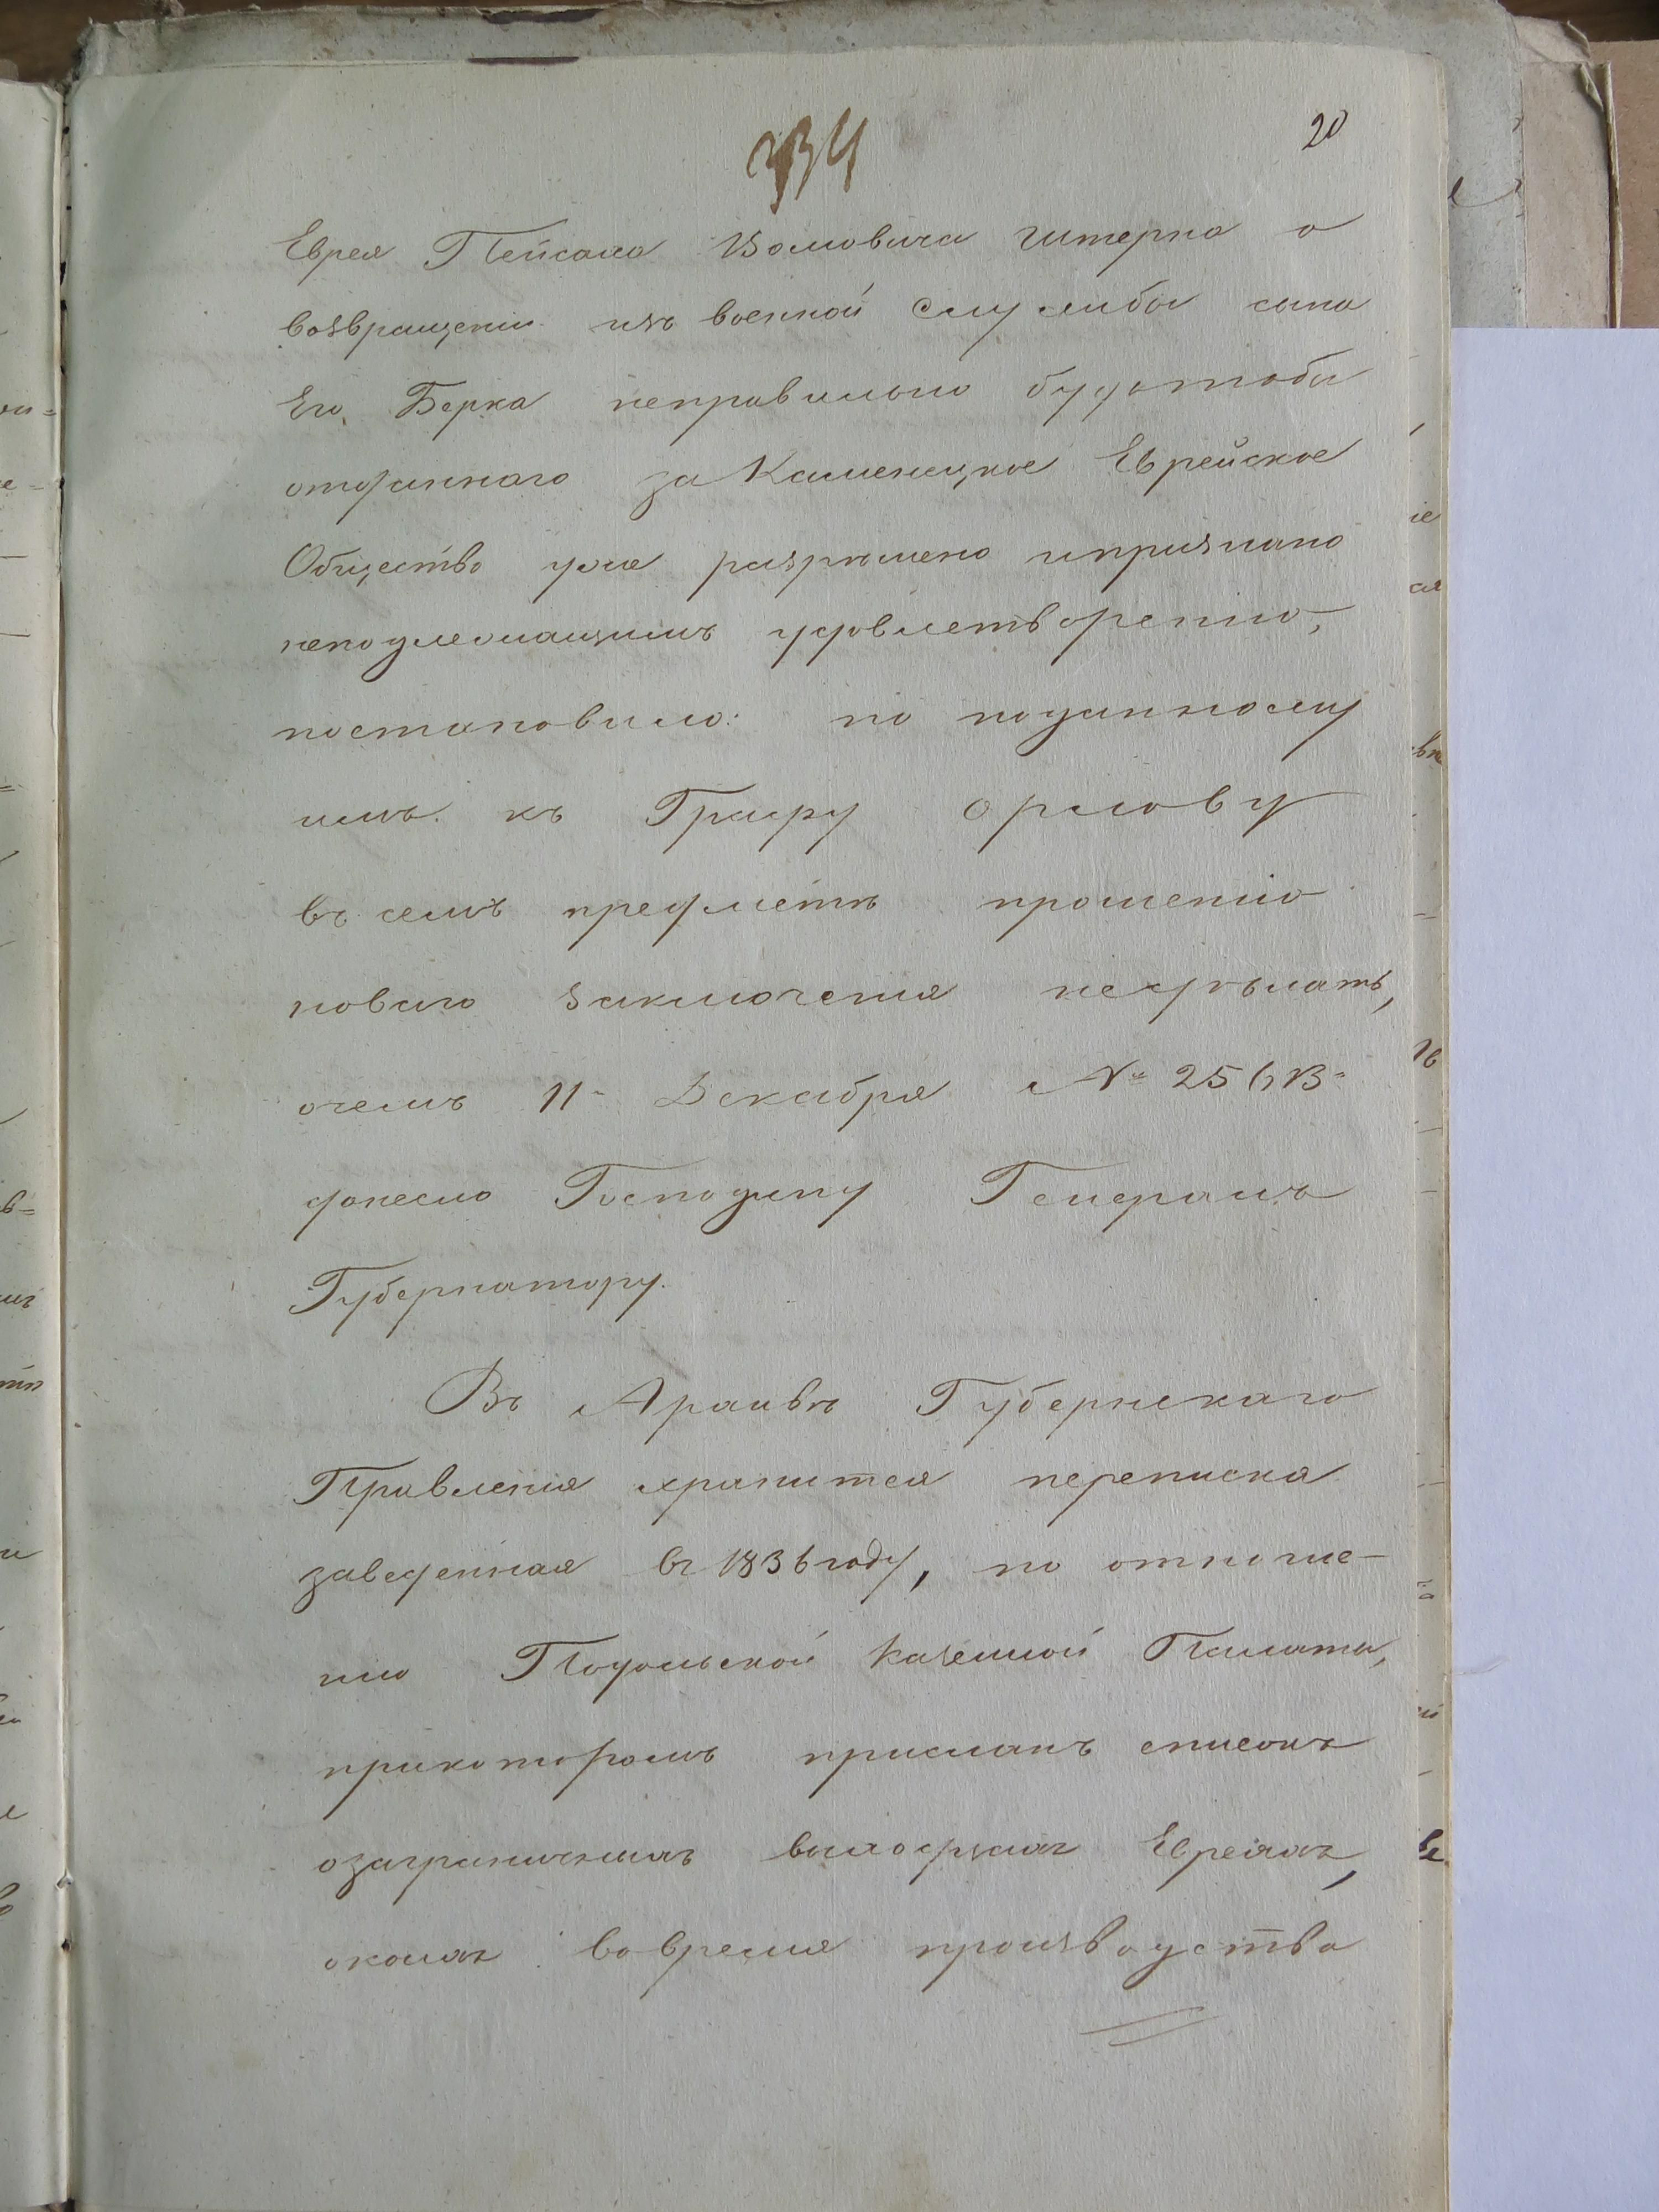 334
20
Еврея Пейсаха Волмовича Штерна о
возвращенiи изъ военной Службы сына
Его Берка неправильно будтобы
отданнаго за Каменецкое Еврейское
Общество уже разрешено ипризнано
неподлежащимъ удовлетворенiю,
постановило: по поданному
имъ къ Графу Орлову
въ семъ предметѣ прошенiю
новаго заключенiя недѣлать,
очемъ 11 Декабря №
донесло Господину Генералъ
Губернатору.
Въ Архивѣ Губернскаго
Правленiя хранится переписка
заведенная въ 1836 году, по отноше-
нiю Подольской Казенной Палаты,
прикоторомъ присланъ списокъ
озаграничныхъ выходцахъ Евреяхъ,
окоихъ вовремя производства